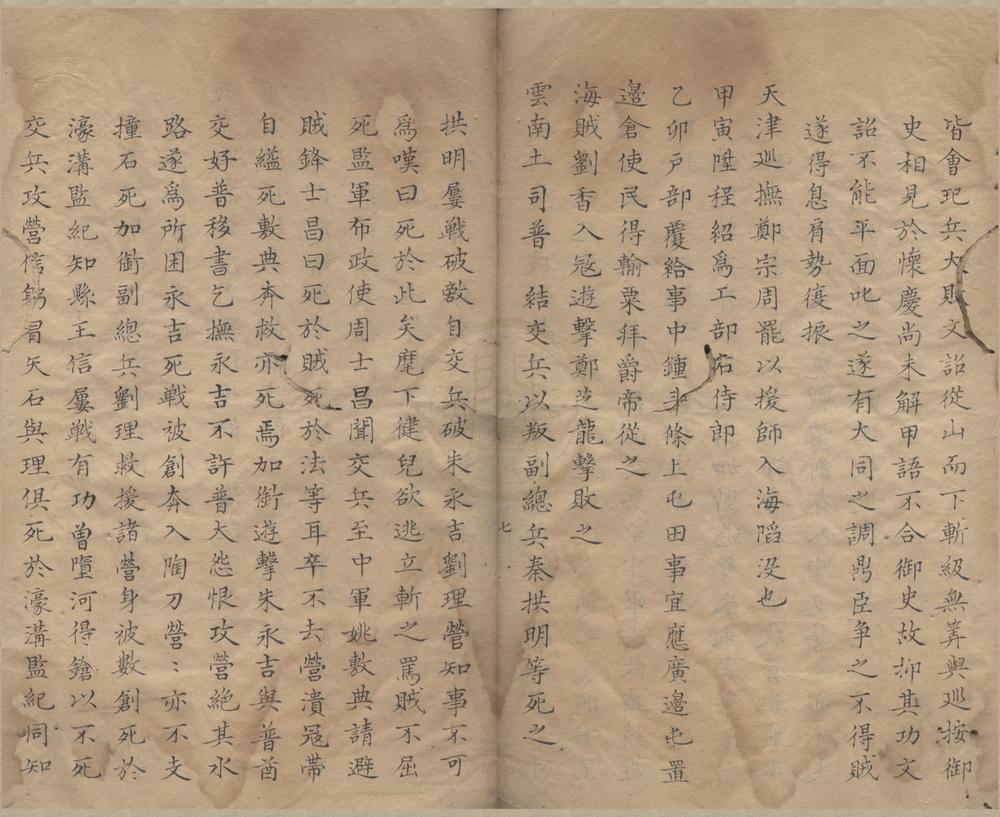 皆會玘兵大敗文詔從山而下斬級無筭與巡按御
史相見於懷慶尚未解甲語不合御史故抑其功文
詔不能平面叱之遂有大同之調鼎臣爭之不得賊
遂得息肩勢復振
天津巡撫鄭宗周罷以援師入海蹈没也
甲寅陞程紹爲工部右侍郎
乙卯戶部覆給事中鍾斗條上屯田事宜應廣邊屯置
邊倉使民得輸粟拜爵帝從之
海賊劉香入冦遊擊鄭芝龍擊敗之
雲南土司普 結交兵以叛副總兵秦拱明等死之
七
拱明屢戰破敎自交兵破朱永吉劉理營知事不可
爲嘆曰死於此矣麾下健兒欲逃立斬之罵賊不屈
死監軍布政使周士昌聞交兵至中軍姚敷典請避
賊鋒士昌曰死於賊死於法等耳卒不去營潰冦帶
自縊死敷典奔救亦死焉加銜遊擊朱永吉與普酋
交好普移書乞撫永吉不許普大怨恨攻營絶其水
路遂爲所困永吉死戰被創奔入陶刀營〻亦不支
撞石死加銜副總兵劉理救援諸營身被數創死於
濠溝監紀知縣王信屢戰有功曽墮河得鎗以不死
交兵攻營信躬冒矢石與理俱死於濠溝監紀同知